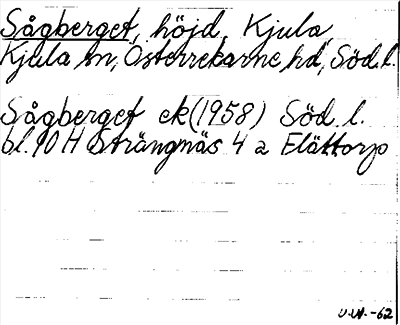 Sågberget, höjd, Kjula
Kjula sn, Österrekarne hd, Söd. l.
Sågberget ek (1958) Söd. l.
bl. 10 H Strängnäs 4 a Elättorp
U.W.-62